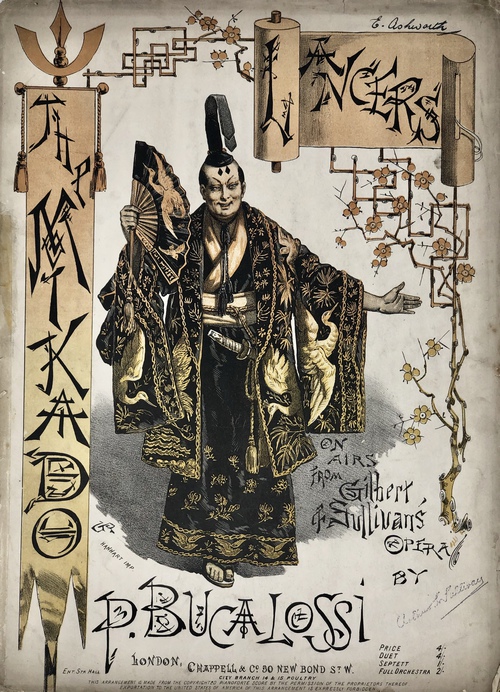 E. Ashworth
LANCERS
THE MIKADO
ON
AIRS
FROM
Gilbert
& Sullivan's
OPERA
BY
P. BUCALOSSI
HANHART IMP.
LONDON, CHAPPELL & Co. 50 NEW BOND ST W.
CITY BRANCH 14 & 15 POULTRY
ENT. STA. HALL
THIS ARRANGEMENT IS MADE FROM THE COPYRIGHT PIANOFORTE SCORE BY THE PERMISSION OF THE PROPRIETORS THEREOF.
EXPORTATION TO THE UNITED STATES OF AMERICA OF THIS ARRANGEMENT IS EXPRESSLY FORBIDDEN.
PRICE 4/-
DUET 4/-
SEPTETT 1/-
FULL ORCHESTRA 2/-